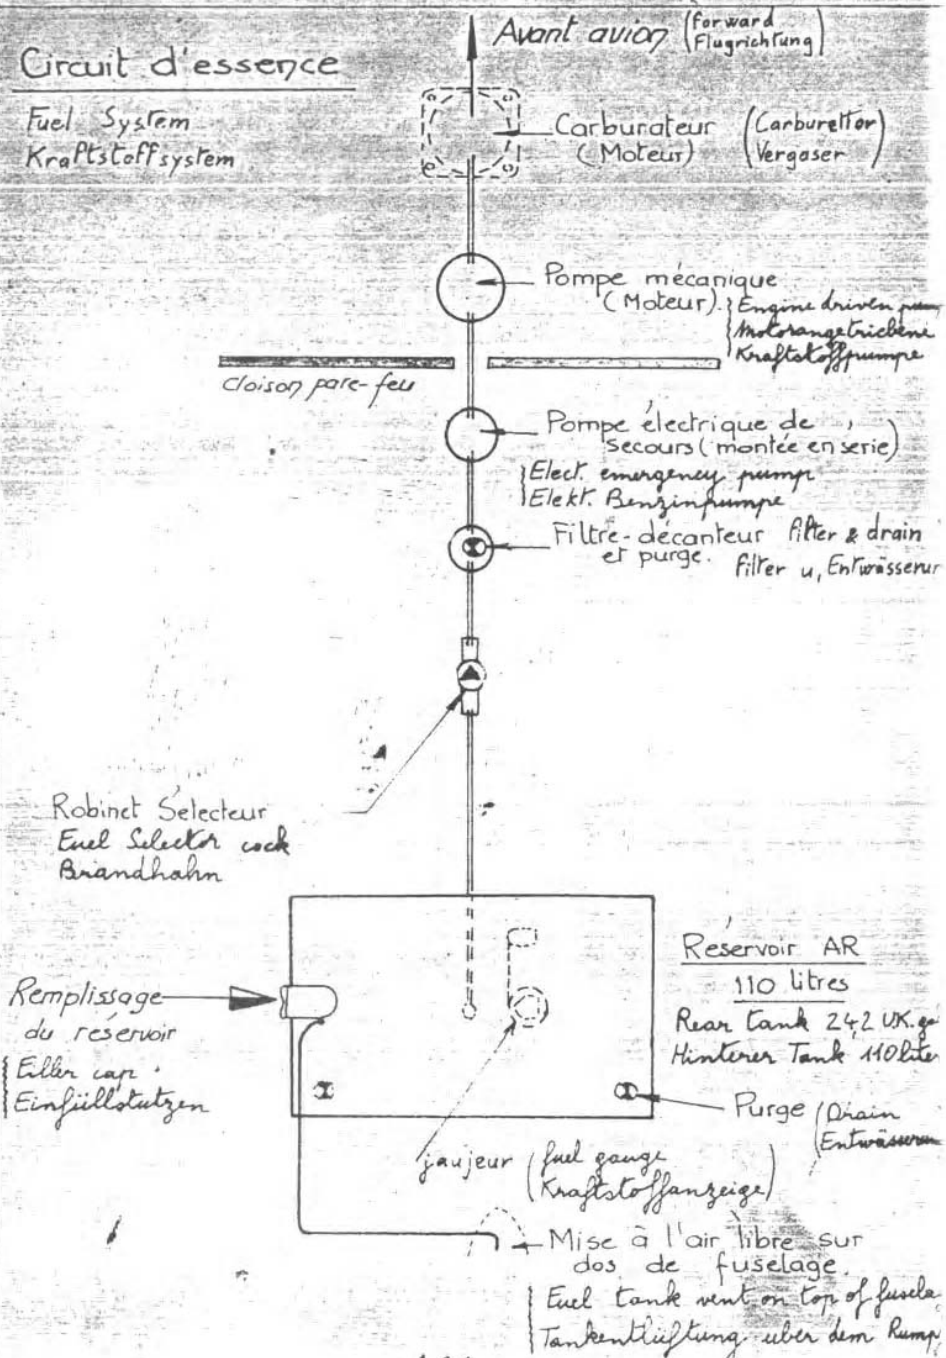 Avant avion (forward
Flugrichtung)
Circuit d'essence
Fuel System
Kraftstoffsystem
Carburateur (Carburettor)
(Moteur) Vergaser
Pompe mécanique
(Moteur). Engine driven
Motorangetriebene
Kraftstoffpumpe
cloison pare-feu
Pompe électrique de
secours (montée en serie)
Elect. emergency pump
Elekt. Benzinpumpe
Filtre-décanteur filter & drain
et purge. filter u, Entwässerun
Robinet Sélecteur
Fuel Selector cock
Brandhahn
Réservoir AR
110 litres
Rear tank 24,2 UK.ga
Hinterer Tank 110 liter
Remplissage
du réservoir
Filler cap
Einfüllstutzen
Purge (Drain
Entwässerun
jaujeur (fuel gauge
Kraftstoffanzeige)
Mise à l'air libre sur
dos de fuselage.
Fuel tank vent on top of fusela
Tankentlüftung uber dem Rump